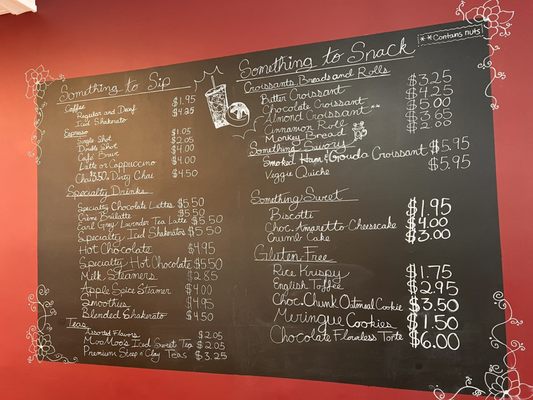 Something to Sip
Coffee
Regular and Decaf $1.95
Iced Shakerato $4.25
Espresso
Single Shot $1.05
Double Shot $2.05
Café Breve $4.00
Latte or Cappuccino $4.00
Chai $3.50, Dirty Chai $4.50
Specialty Drinks
Specialty Chocolate Lattes $5.50
Crème Brûlatte $5.50
Earl Grey/Lavender Tea Latte $5.50
Specialty Iced Shakeratos $5.50
Hot Chocolate $4.95
Specialty Hot Chocolate $5.50
Milk Steamers $2.85
Apple Spice Steamer $4.00
Smoothies $4.95
Blended Shakerato $4.50
Teas
Assorted Flavors $2.05
MooMoo's Iced Sweet Tea $2.05
Premium Steep n Clay Teas $3.25
Something to Snack
**Contains nuts
Croissants Breads and Rolls
Butter Croissant $3.25
Chocolate Croissant $4.25
Almond Croissant ** $5.00
Cinnamon Roll $3.65
Monkey Bread $2.00
Something Savory
Smoked Ham & Gouda Croissant $5.95
Veggie Quiche $5.95
Something Sweet
Biscotti $1.95
Choc. Amaretto Cheesecake $4.00
Crumb Cake $3.00
Gluten Free
Rice Krispy $1.75
English Toffee $2.95
Choc. Chunk Oatmeal Cookie $3.50
Meringue Cookies $1.50
Chocolate Flourless Torte $6.00